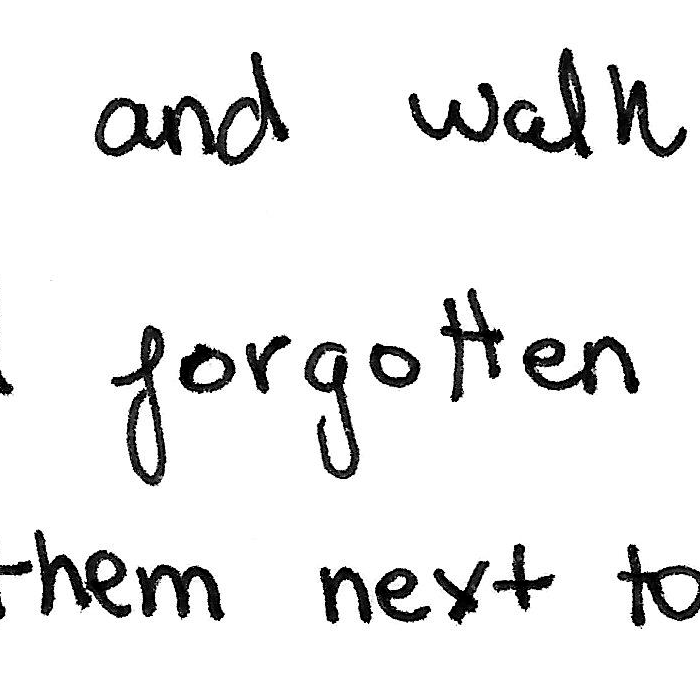 and walk
forgotten
them next to